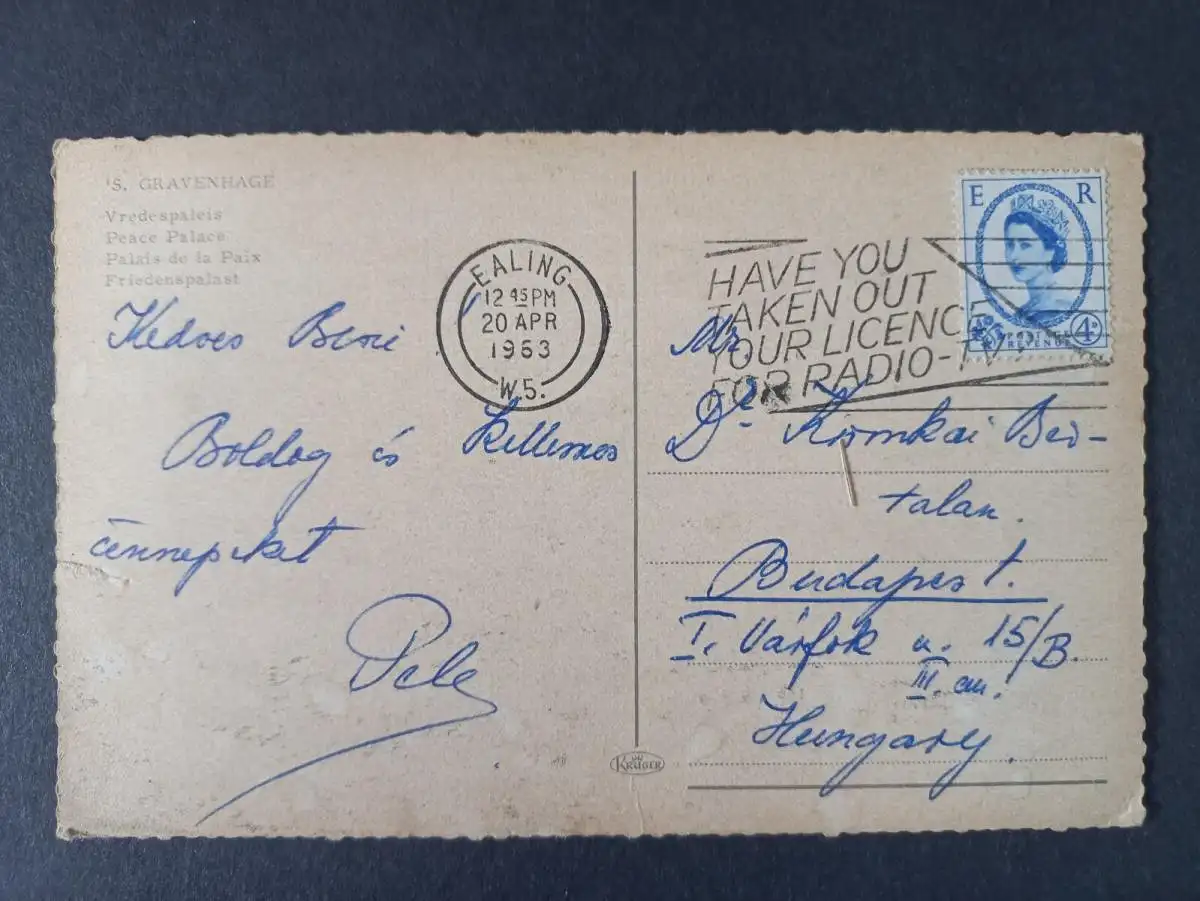 'S. GRAVENHAGE
Vredespaleis
Peace Palace
Palais de la Paix
Friedenspalast
Kedves Beni
Boldog és kellemes
ünnepeket
Pele
EALING
12 45 PM
20 APR
1963
W.5.
HAVE YOU
TAKEN OUT
YOUR LICENCE
FOR RADIO-TV
E R
POSTAGE
REVENUE
4D
Mr.
Dr. Komkai Ber-
talan.
Budapest.
I. Várfok u. 15/B.
III. em.
Hungary.
KRÜGER